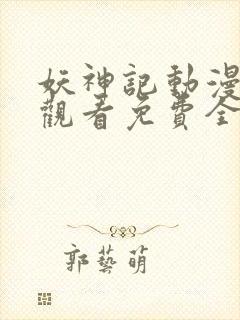 妖神記動漫
觀看免費全
郭藝萌